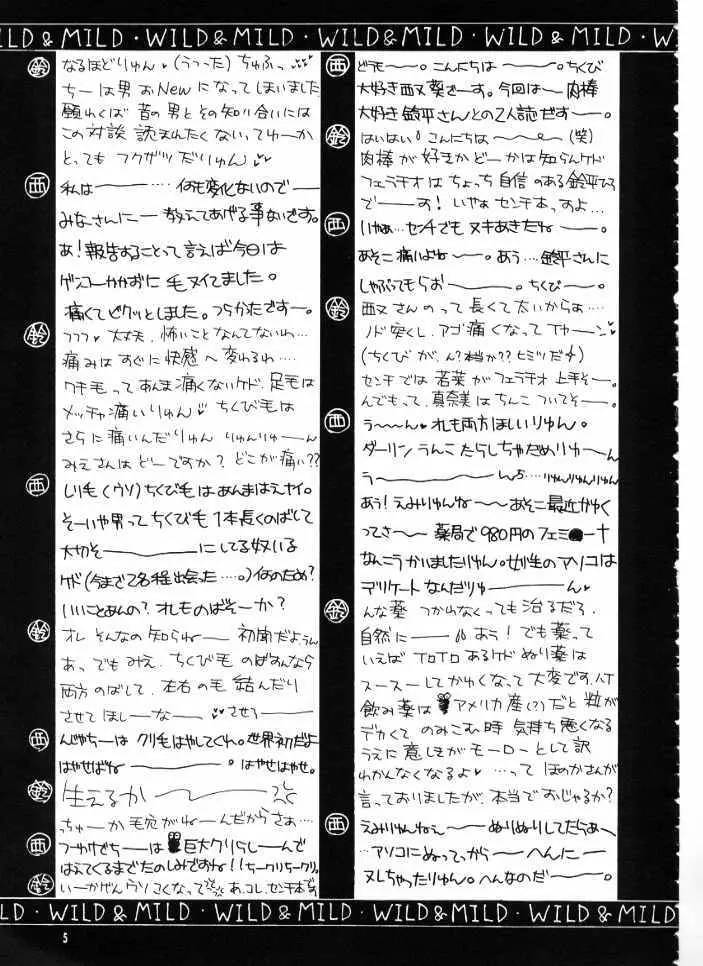 WILD & MILD · WILD & MILD · WILD & MILD · WILD & MILD · W
西 どうも〜〜。こんにちは〜〜〜。ちくび
大好き西又葵でーす。今回は〜肉棒
大好き鈴平さんとの2人誌だす〜〜。
鈴 はいはい!こんにちは〜〜〜(笑)
肉棒が好きかどーかは知らんケド
フェラチオはちょっち自信のある鈴平ひろ
で〜〜す!いやぁセンチ本っすよ...
西 いやぁ…センチでもヌキあきたね〜〜。
あそこ痛いよね〜〜。あう…鈴平さんに
しゃぶってもらお〜〜〜。ちくび〜〜。
鈴 西又さんのって長くて太いからぁ....
ノド突くし、アゴ痛くなってイヤ〜ン
(ちくびが、ん?本当か??ヒミツだ)
センチでは若菜がフェラチオ上手そ〜。
んでもって、真奈美はちんこついてそ〜。
西 う〜〜ん オレも両方ほしいりゅん。
ダーリンうんこたらしちゃだめりゅ〜〜ん
う〜〜〜〜〜 んち…りゅんりゅんりゅん
あう!えみりゅんね〜〜あそこ最近かゆく
ってさ〜〜薬局で980円のフェミ●ー†
なんこうかいましたりゅん。女性のアソコは
デリケートなんだりゅ〜〜〜〜ん
鈴 んな薬つかわなくっても治るだろ、
自然に〜〜〜 あう!でも薬って
いえばイロイロあるケドぬり薬は
スースーしてかゆくなって大変です、ハイ
飲み薬は アメリカ産(?)だと粒が
デカくてのみこむ時気持ち悪くなる
うえに意しきがモーローとして訳
わかんなくなるよ …ってほのかさんが
言っておりましたが、本当でおじゃるか?
西 えみりゅんねぇ〜〜〜ぬりぬりしてたらあ〜、
…アソコにぬってっから〜〜へんに〜
ヌレちゃったりゅん。へんなのだ〜〜〜。
鈴 なるほどりゅん (うっった)ちゅふっ
ちーは男おNewになってしまいました
願わくば昔の男とその知り合いには
この対談読まれたくないってゅーか
とってもフクザツだりゅん
西 私は〜〜〜… 何も変化ないので〜
みなさんに〜教えてあげる事ないです。
あ!報告することって言えば今日は
ゲンコーかかずに毛ヌイてました。
痛くてビクッとしました。つらかたですー。
鈴 フフフ 大丈夫、怖いことなんてないわ…
痛みはすぐに快感へ変わるわ....
ワキ毛ってあんま痛くないケド、足毛は
メッチャ痛いりゅん ちくび毛は
さらに痛いんだりゅん りゅんりゅ〜ん
みえさんはどーですか?どこが痛い??
西 しり毛(ウソ)ちくび毛はあんまはえナイ。
そーいや男ってちくび毛1本長くのばして
大切そ〜〜〜〜〜にしてる奴いる
ケド(今まで2名程出会った…。)何のため?
いいことあんの?オレものばそーか?
鈴 オレそんなの知らね〜 初聞だよぅん
あっでもみえ、ちくび毛のばすんなら
両方のばして、左右の毛結んだり
させてほし〜な〜、 させろ〜〜
西 んじゃち〜はクリ毛はやしてくれ。世界初だよ
はやせばね〜〜〜〜。はやせはやせ。
鈴 生えるか〜〜〜〜〜
ちゅーか毛穴がね〜んだからさぁ…
西 つーわけでち〜は 巨大クリらし〜んで
はえてくるまでたのしみですね!!ち〜クリち〜クリ。
鈴 いーかげんウソこくなって あ、コレ、センチ本
LD · WILD & MILD · WILD & MILD · WILD & MILD · WILD & MILD
5